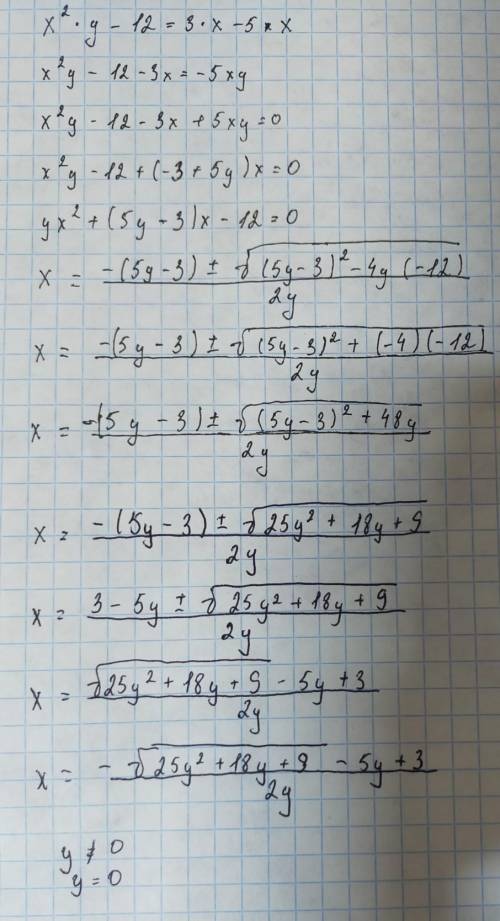 x² · y - 12 = 3 · x - 5 x x
x²y - 12 - 3x = -5xy
x²y - 12 - 3x + 5xy = 0
x²y - 12 + (-3 + 5y) x = 0
yx² + (5y - 3) x - 12 = 0
x = -(5y - 3) ± √(5y - 3)² - 4y (-12) / 2y
x = -(5y - 3) ± √(5y - 3)² + (-4)(-12) / 2y
x = -(5y - 3) ± √(5y - 3)² + 48y / 2y
x = -(5y - 3) ± √25y² + 18y + 9 / 2y
x = 3 - 5y ± √25y² + 18y + 9 / 2y
x = √25y² + 18y + 9 - 5y + 3 / 2y
x = - √25y² + 18y + 9 - 5y + 3 / 2y
y ≠ 0
y = 0